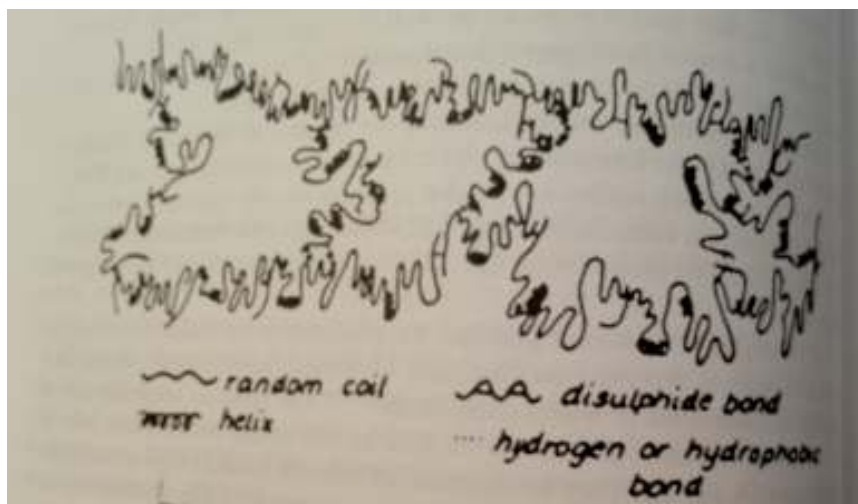 random coil
helix
disulphide bond
hydrogen or hydrophobic
bond